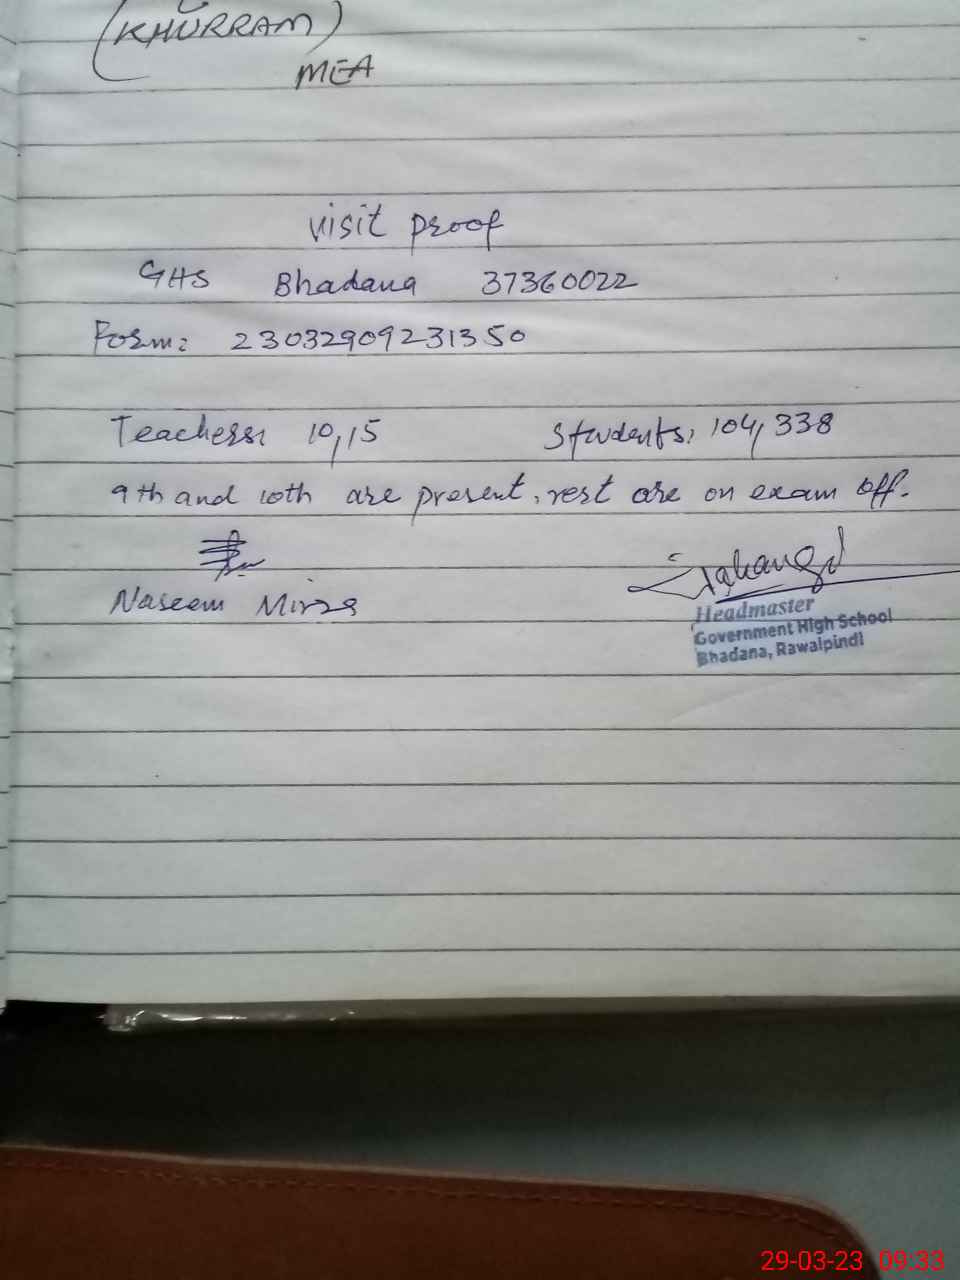 (KHURRAM)
MEA
visit proof
GHS Bhadana 37360022
Form: 23032909231350
Teachers: 10,15 Students: 104, 338
9th and 10th are present, rest are on exam off.
Jahangir
Naseem Mirza
Headmaster
Government High School
Bhadana, Rawalpindi
29-03-23 09:33